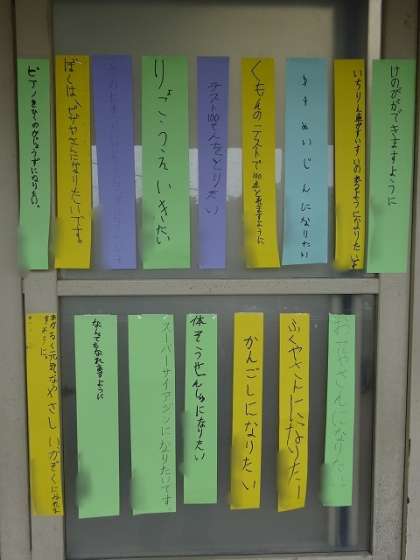 けのびができますように
いちりん車がすいすいのれるようになりたいです
になりたい
くもんのテストで100点とれますように
テスト100てんをとりたい
りょこうえいきたい
ぼくは、ピザやさんになりたいです。
ピアノをひくのがじょうずになりたい。
おてやさんになりたい。
ふくやさんになりたい
かんごしになりたい
体そうせんしゅになりたい
スーパーサイアジンになりたいです。
なんでもなれますように
あかるく元気なやさしいかぞくになれますように。